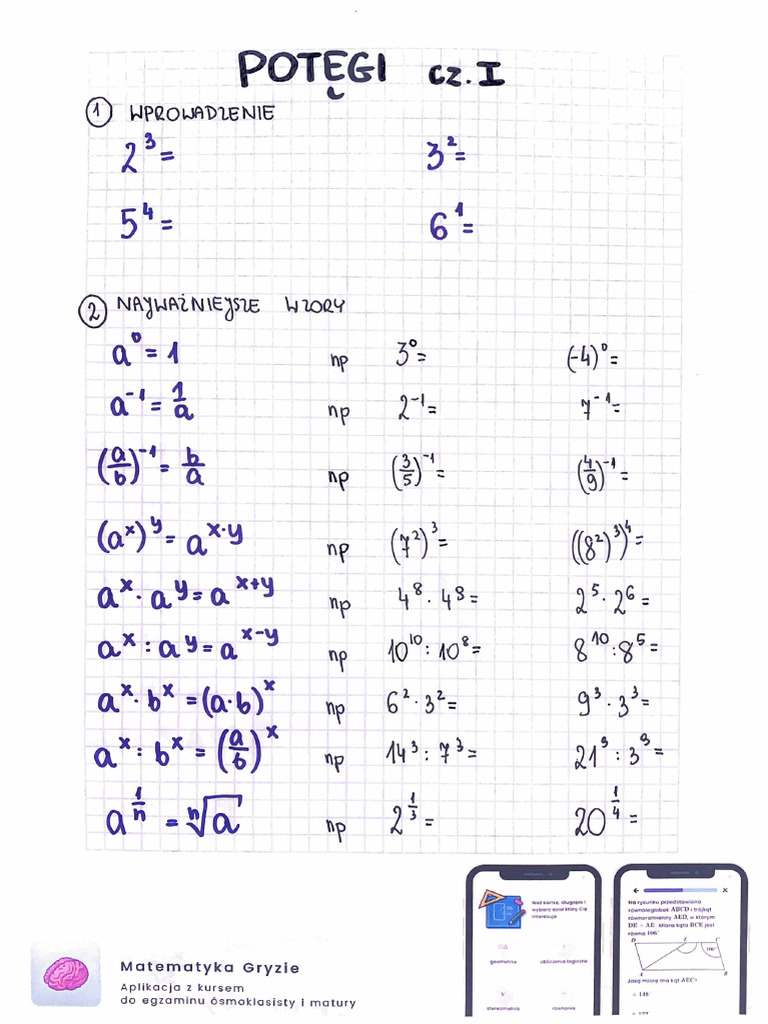 POTĘGI cz. I
1 WPROWADZENIE
2³= 3²=
5⁴= 6¹=
2 NAJWAŻNIEJSZE WZORY
a⁰ = 1 np 3⁰= (-4)⁰=
a⁻¹ = 1/a np 2⁻¹= 7⁻¹=
(a/b)⁻¹ = b/a np (3/5)⁻¹= (4/9)⁻¹=
(aˣ)ʸ = a^(x·y) np (7²)³= ((8²)³)⁴=
aˣ · aʸ = a^(x+y) np 4⁸ · 4⁸= 2⁵ · 2⁶=
aˣ : aʸ = a^(x-y) np 10¹⁰ : 10⁸= 8¹⁰ : 8⁵=
aˣ · bˣ = (a·b)ˣ np 6² · 3²= 9³ · 3³=
aˣ : bˣ = (a/b)ˣ np 14³ : 7³= 21⁹ : 3⁹=
a^(1/n) = ⁿ√a np 2^(1/3)= 20^(1/4)=
Matematyka Gryzie
Aplikacja z kursem
do egzaminu ósmoklasisty i matury
Weź kartkę, długopis i
wybierz dział który Cię
interesuje
geometria obliczenia logiczne
stereometria równania
Na rysunku przedstawiono
równoległobok ABCD i trójkąt
równoramienny AED, w którym
DE = AE. Miara kąta BCE jest
równa 106°
D E C
106°
A B
Jaką miarę ma kąt AEC?
148